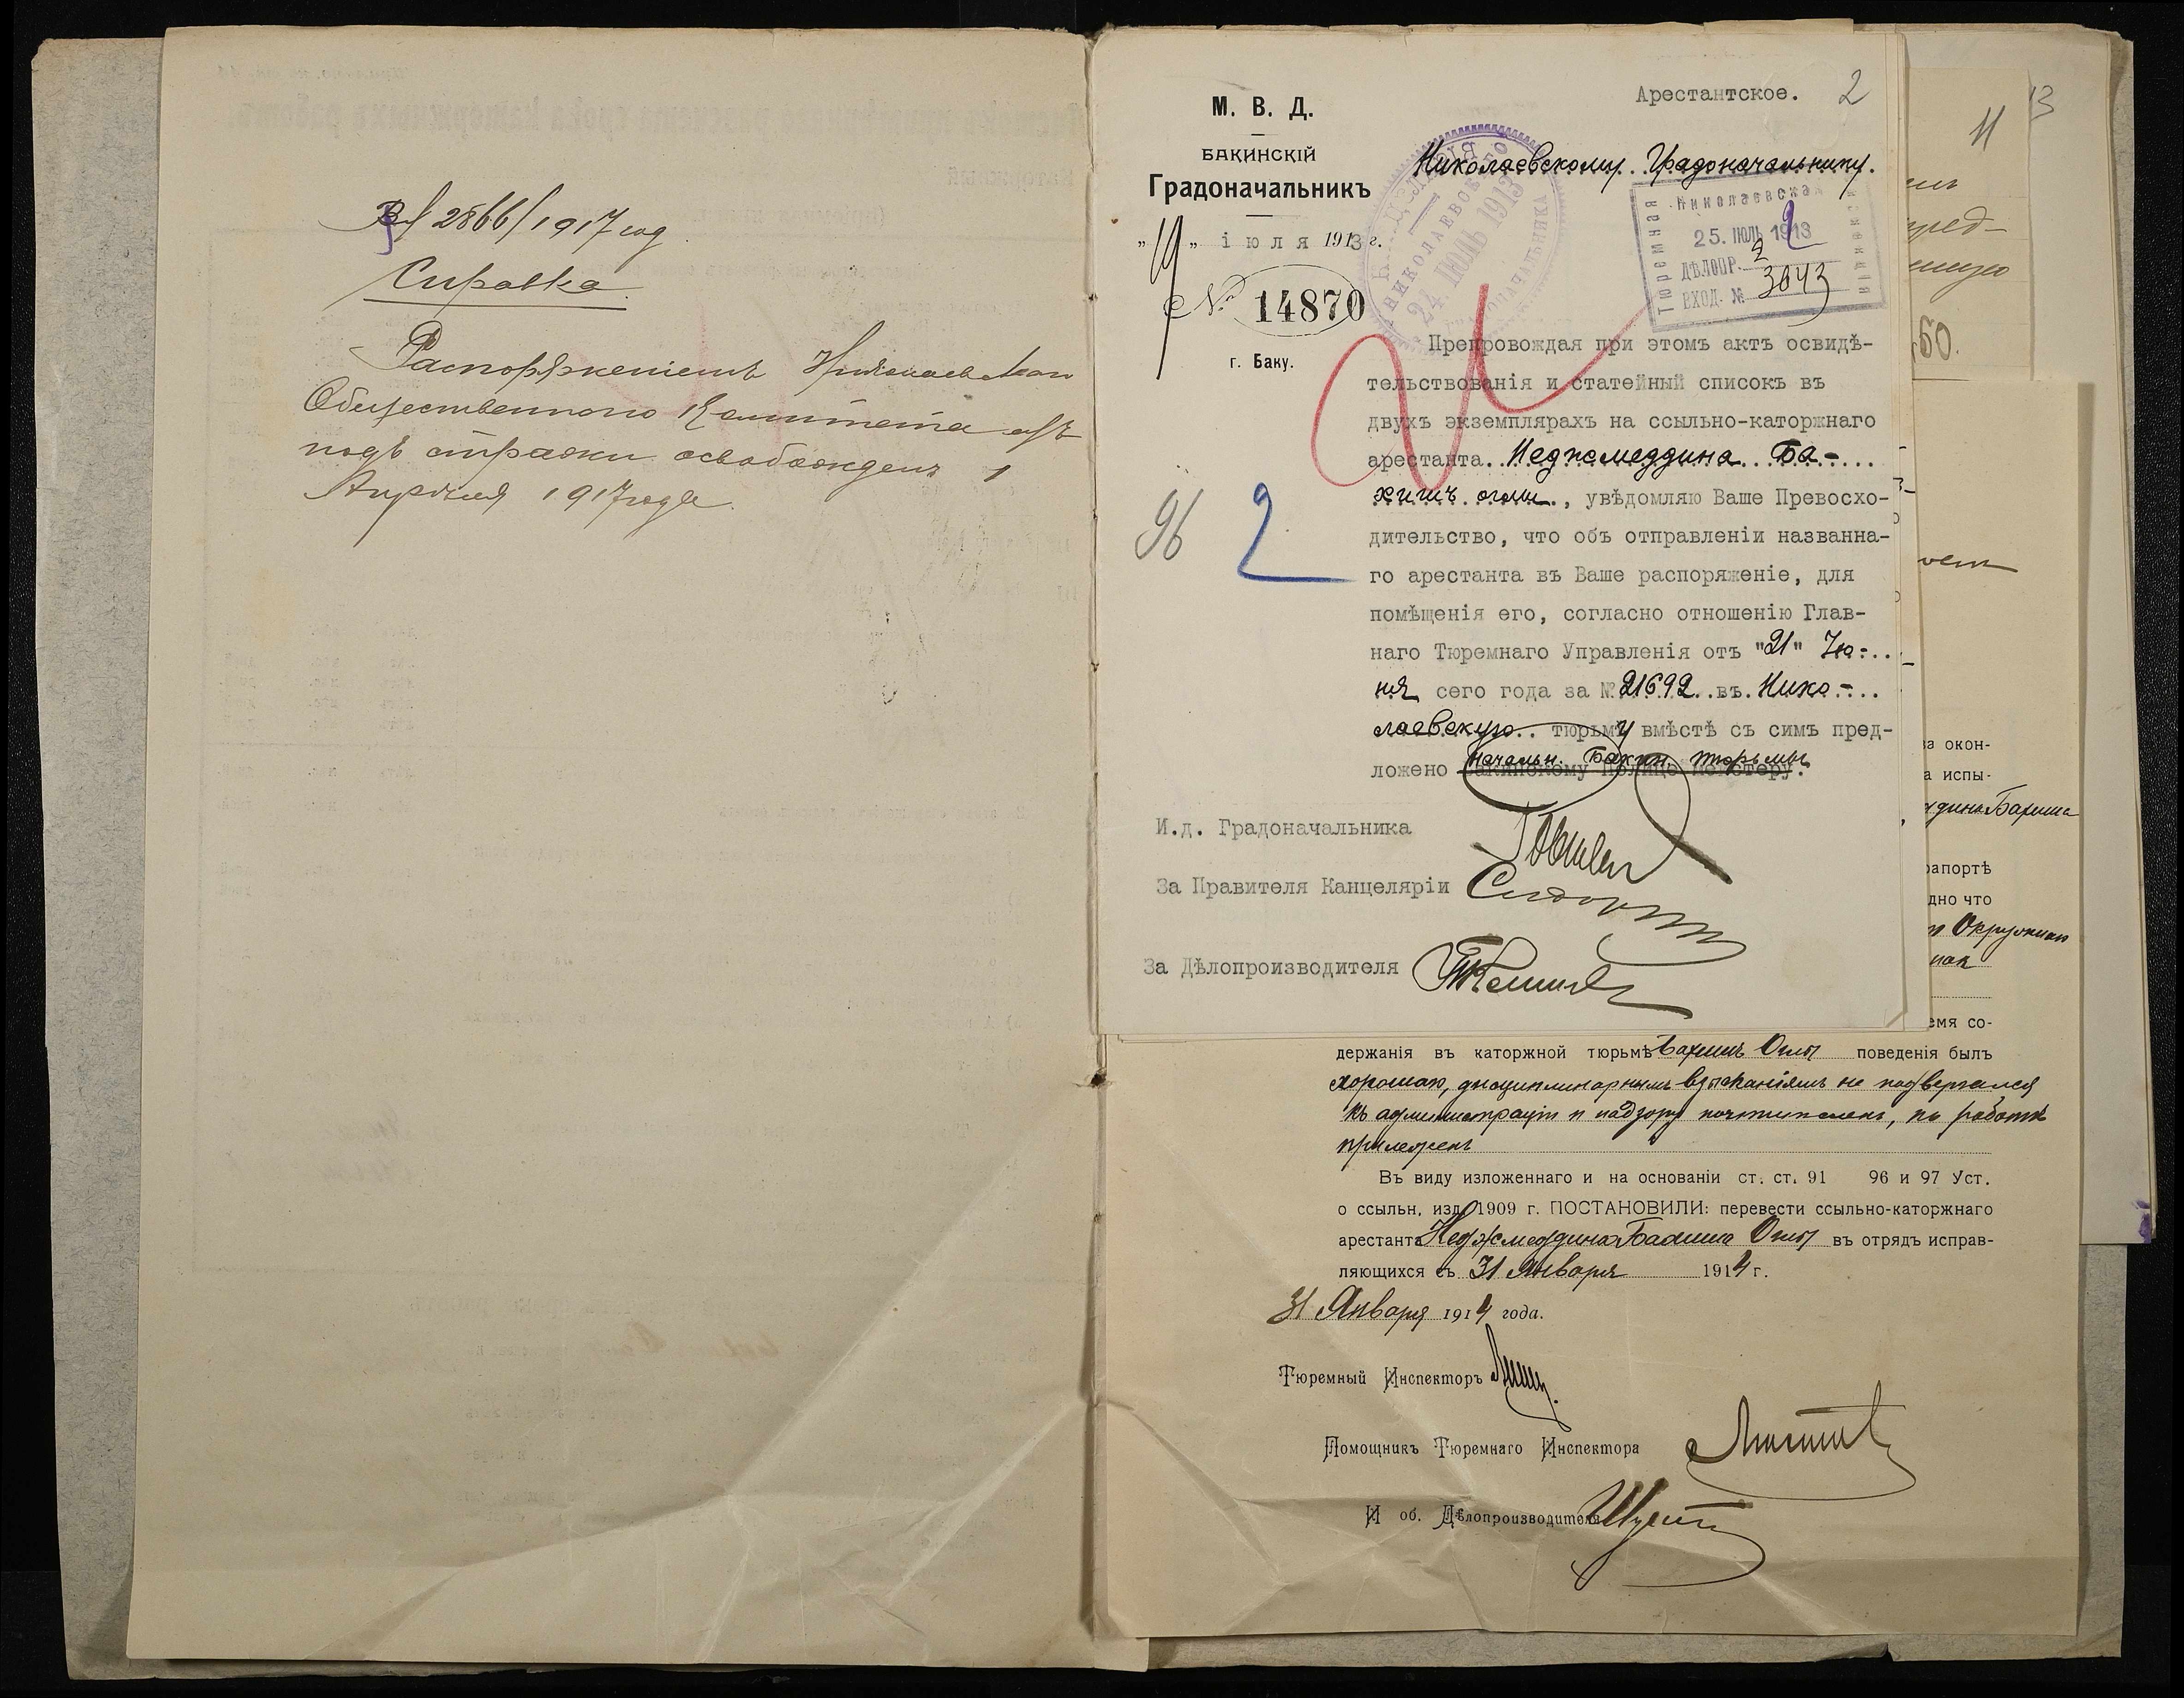 2866/1917 год
Справка
Распоряженiемъ Николаевскаго
Общественнаго Комитета изъ
подъ стражи освобожденъ 1
Апрѣля 1917 года.
М. В. Д.
БАКИНСКІЙ
Градоначальникъ
"19" іюля 1913 г.
№ 14870
г. Баку.
96 2
Арестантское. 2
Николаевскому Градоначальнику.
24 ІЮЛЬ 1913
Николаевская
Тюремная
25. ІЮЛЬ 1913
ДѢЛОПР. 2
ВХОД. № 3043
Препровождая при этомъ актъ освидѣ-
тельствованія и статейный списокъ въ
двухъ экземплярахъ на ссыльно-каторжнаго
арестанта Неджмеддина Ба-
хишъ оглы, увѣдомляю Ваше Превосхо-
дительство, что объ отправленіи названна-
го арестанта въ Ваше распоряженіе, для
помѣщенія его, согласно отношенію Глав-
наго Тюремнаго Управленія отъ "21" Iю-
ня сего года за № 21692 въ Нико-
лаевскую тюрьму вмѣстѣ съ симъ пред-
ложено начальн. Бакин. тюрьмы
И.д. Градоначальника
За Правителя Канцеляріи
За Дѣлопроизводителя
11
13
пред-
50.
за окон-
а испы-
дина Бахиша
рапортѣ
дно что
Окружнаго
емя со-
держанія въ каторжной тюрьмѣ Бахишъ Оглы поведенія былъ
хорошаго, дисциплинарнымъ взысканіямъ не подвергался
къ администраціи и надзору почтителенъ, къ работѣ
прилеженъ
Въ виду изложеннаго и на основаніи ст. ст. 91 96 и 97 Уст.
о ссыльн, изд. 1909 г. ПОСТАНОВИЛИ: перевести ссыльно-каторжнаго
арестанта Неджмеддина Бахиша Оглы въ отрядъ исправ-
ляющихся съ 31 Января 1914 г.
31 Января 1914 года.
Тюремный Инспекторъ
Помощникъ Тюремнаго Инспектора
И об. Дѣлопроизводителя